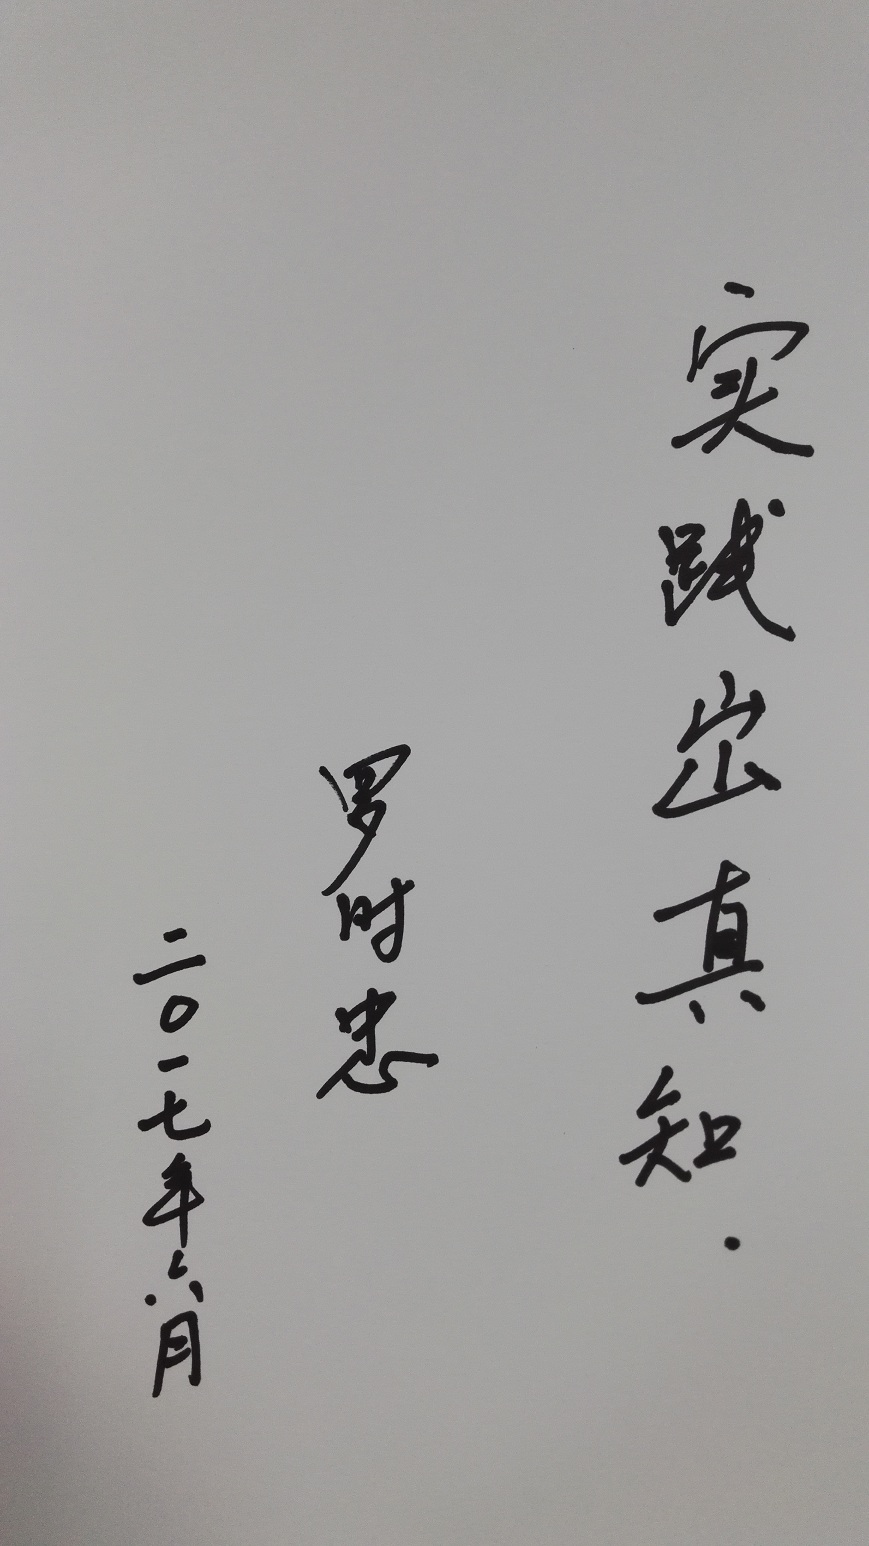 实践出真知.
罗时忠
二〇一七年六月